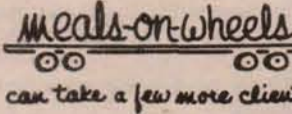 meals-on-wheels
can take a few more